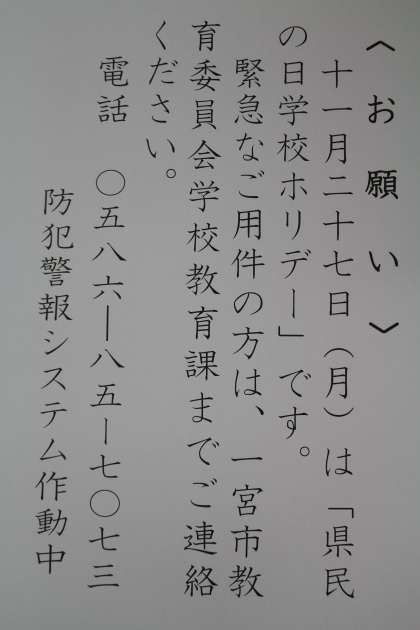 〈お願い〉
十一月二十七日（月）は「県民
の日学校ホリデー」です。
緊急なご用件の方は、一宮市教
育委員会学校教育課までご連絡
ください。
電話　〇五八六―八五―七〇七三
防犯警報システム作動中